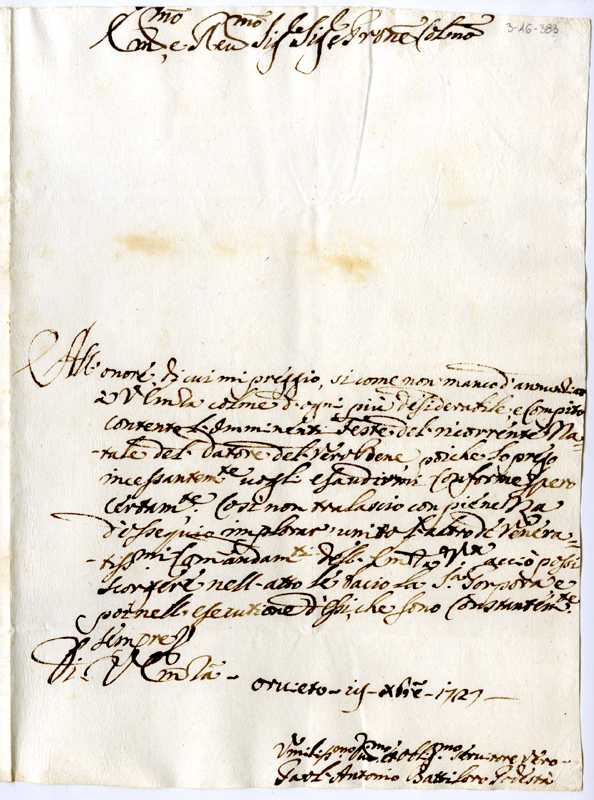 3-16-383
Em͞o e Reu͞mo Sig.re Sig.re Prone Colmo
All' onore, di cui mi preggio, si come non manco d'annunciar
a V. Em͞za colme d'ogni più desiderabile, e compito
contento l'Imminenti Feste del ricorrente Na-
-tale del Datore del vero bene, poiche lo prego
incessantem.te vogli esaudirmi conforme spero
certam.te. Così non tralascio con pienezza
d'ossequio implorar unito l'altro de Venera-
-tissmi Comandam.ti dell' Em͞za Vra acciò possi
scorgere nell'atto le bacio la S.a Porpora e
poi nell' esecutione d'essi, che sono constantem.te
sempre
Di V. Em͞za
Orvieto 15 Xbre 1727
Vmiliss.mo Dmo et Obblig.mo Servitore Vero
Antonio Battiloro Podestà